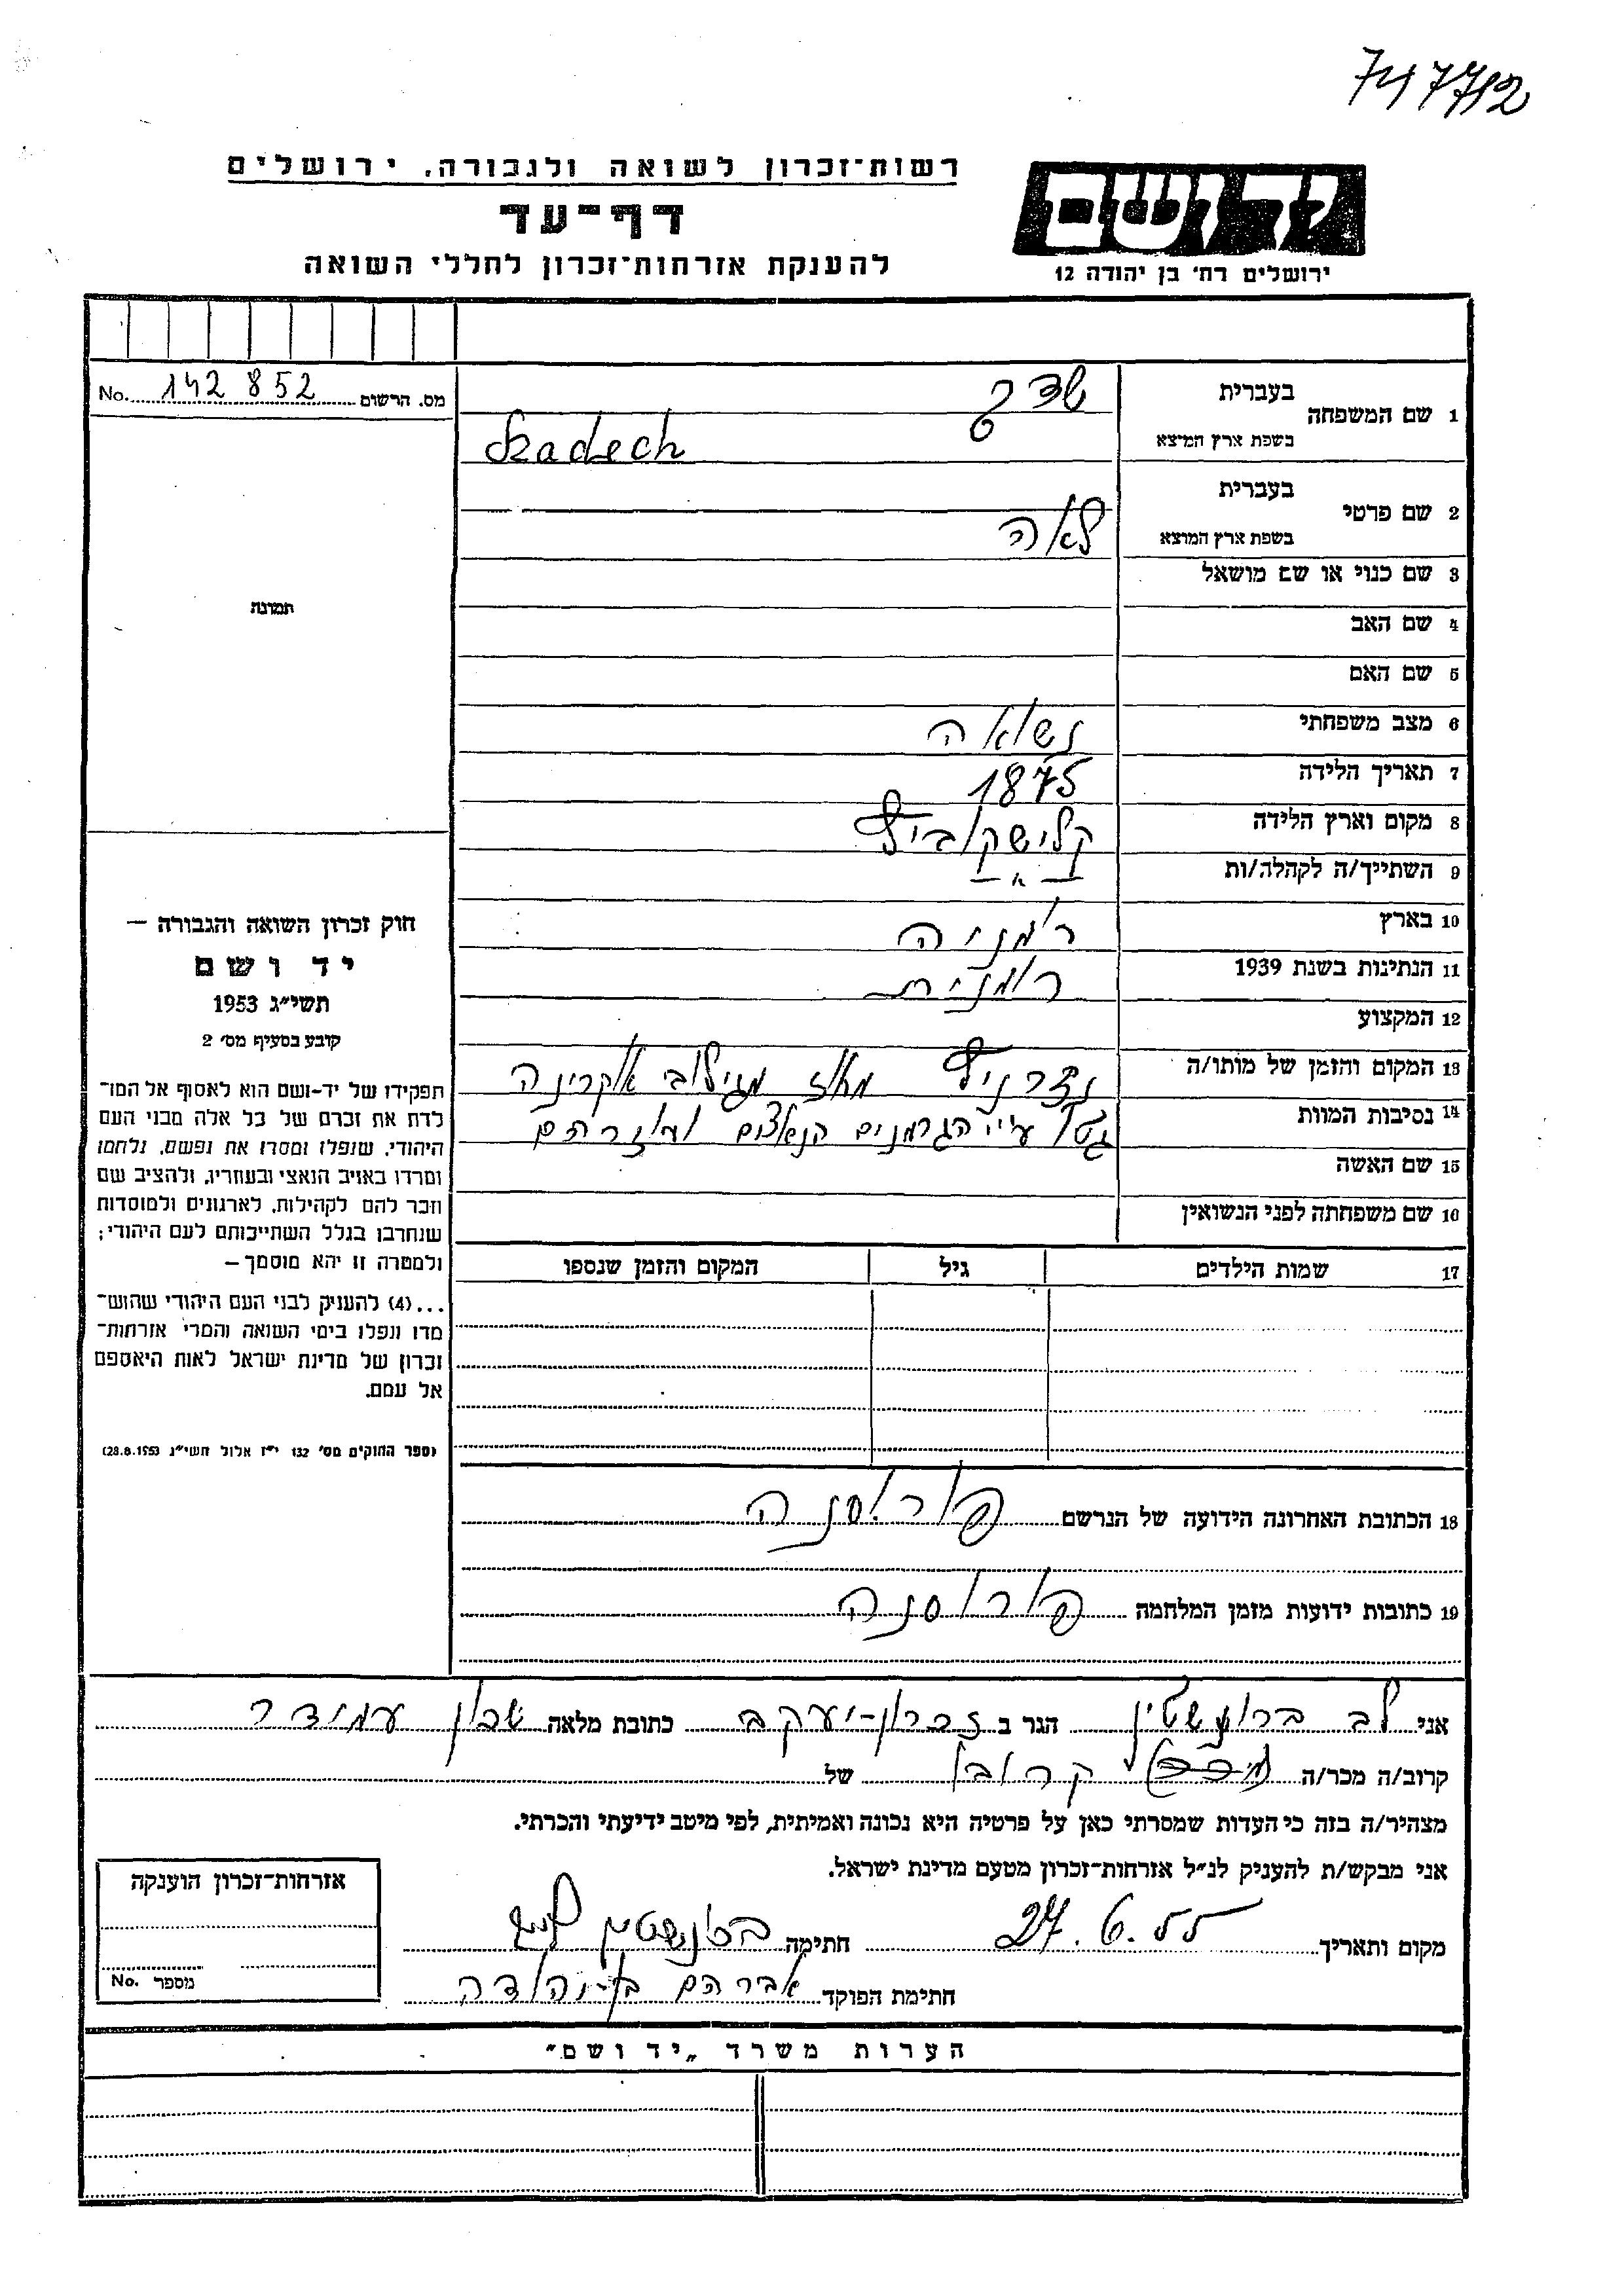 747712
רשות־זכרון לשואה ולגבורה, ירושלים
דף־עד
להענקת אזרחות־זכרון לחללי השואה
יד ושם
ירושלים רח׳ בן יהודה 12
מס. הרשום 142 852 No.
1 שם המשפחה בעברית שדך
בשפת ארץ המוצא Szadech
2 שם פרטי בעברית
בשפת ארץ המוצא לאה
3 שם כנוי או שם מושאל
4 שם האב
5 שם האם
6 מצב משפחתי נשואה
7 תאריך הלידה 1875
8 מקום וארץ הלידה
9 השתייך/ה לקהלה/ות — " —
10 בארץ רומניה
11 הנתינות בשנת 1939 רומנית
12 המקצוע
13 המקום והזמן של מותו/ה מאז מגילוב אקרינה
14 נסיבות המוות גטו ע״י הגרמנים הנאצים ועוזריהם
15 שם האשה
16 שם משפחתה לפני הנשואין
17 שמות הילדים גיל המקום והזמן שנספו
18 הכתובת האחרונה הידועה של הנרשם פורוסנה
19 כתובות ידועות מזמן המלחמה פורוסנה
תמונה
חוק זכרון השואה והגבורה —
יד ושם
תשי״ג 1953
קובע בסעיף מס׳ 2
תפקידו של יד-ושם הוא לאסוף אל המו־
לדת את זכרם של כל אלה מבני העם
היהודי, שנפלו ומסרו את נפשם, נלחמו
ומרדו באויב הנאצי ובעוזריו, ולהציב שם
וזכר להם לקהילות, לארגונים ולמוסדות
שנחרבו בגלל השתייכותם לעם היהודי;
ולמטרה זו יהא מוסמך —
...(4) להעניק לבני העם היהודי שהוש־
מדו ונפלו בימי השואה והמרי אזרחות־
זכרון של מדינת ישראל לאות היאספם
אל עמם.
(ספר החוקים מס׳ 132 י״ז אלול תשי״ג 28.8.1953)
אני לב ברונשטין הגר ב זכרון-יעקב כתובת מלאה שכון עמידר
קרוב/ה מכר/ה קרובו של
מצהיר/ה בזה כי העדות שמסרתי כאן על פרטיה היא נכונה ואמיתית, לפי מיטב ידיעתי והכרתי.
אני מבקש/ת להעניק לנ״ל אזרחות־זכרון מטעם מדינת ישראל.
מקום ותאריך 27.6.55 חתימה ברונשטין
חתימת הפוקד אברהם בן-יהודה
אזרחות־זכרון הוענקה
מספר No.
הערות משרד „יד ושם"